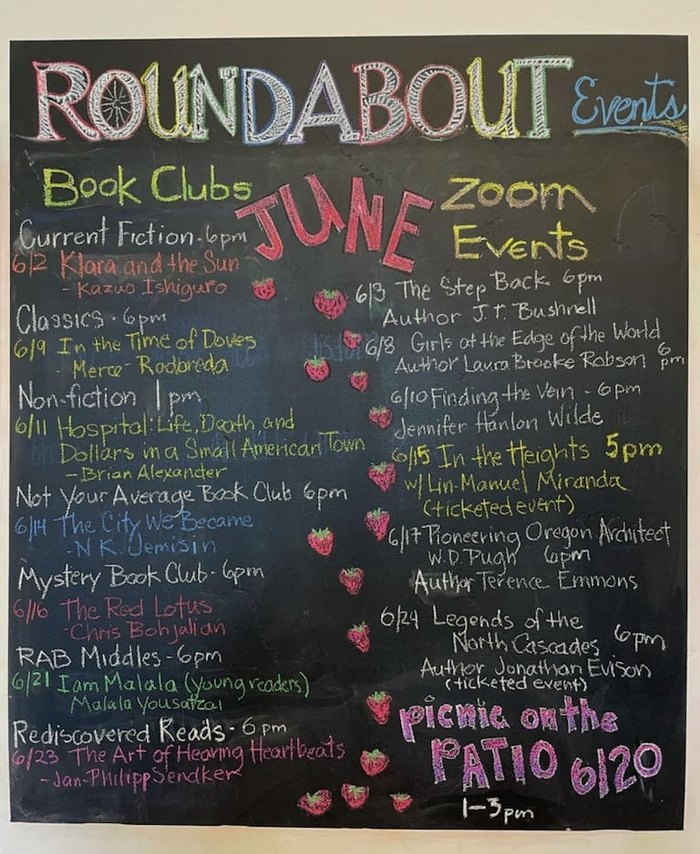 ROUNDABOUT Events
Book Clubs
JUNE
Current Fiction - 6pm
6/2 Klara and the Sun
- Kazuo Ishiguro
Classics - 6pm
6/9 In the Time of Doves
- Merce Rodoreda
Non-fiction 1pm
6/11 Hospital: Life, Death and
Dollars in a Small American Town
- Brian Alexander
Not Your Average Book Club 6pm
6/14 The City We Became
- N.K. Jemisin
Mystery Book Club - 6pm
6/16 The Red Lotus
- Chris Bohjalian
RAB Middles - 6pm
6/21 I am Malala (young readers)
Malala Yousafzai
Rediscovered Reads - 6pm
6/23 The Art of Hearing Heartbeats
- Jan-Philipp Sendker
Zoom
Events
6/3 The Step Back 6pm
Author J.T. Bushnell
6/8 Girls at the Edge of the World
Author Laura Brooke Robson 6pm
6/10 Finding the Vein - 6pm
Jennifer Hanlon Wilde
6/15 In the Heights 5pm
w/ Lin-Manuel Miranda
(ticketed event)
6/17 Pioneering Oregon Architect
W.D. Pugh 6pm
Author Terence Emmons
6/24 Legends of the
North Cascades 6pm
Author Jonathan Evison
(ticketed event)
picnic on the
PATIO 6/20
1-3pm